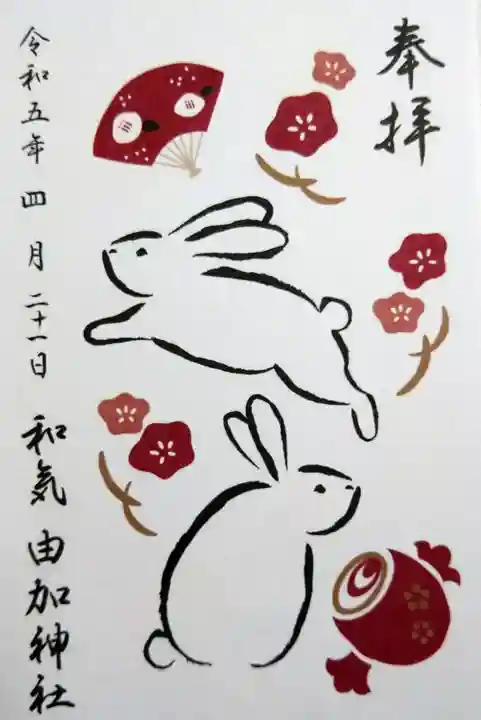 奉拝
令和五年 四月二十一日 和気由加神社